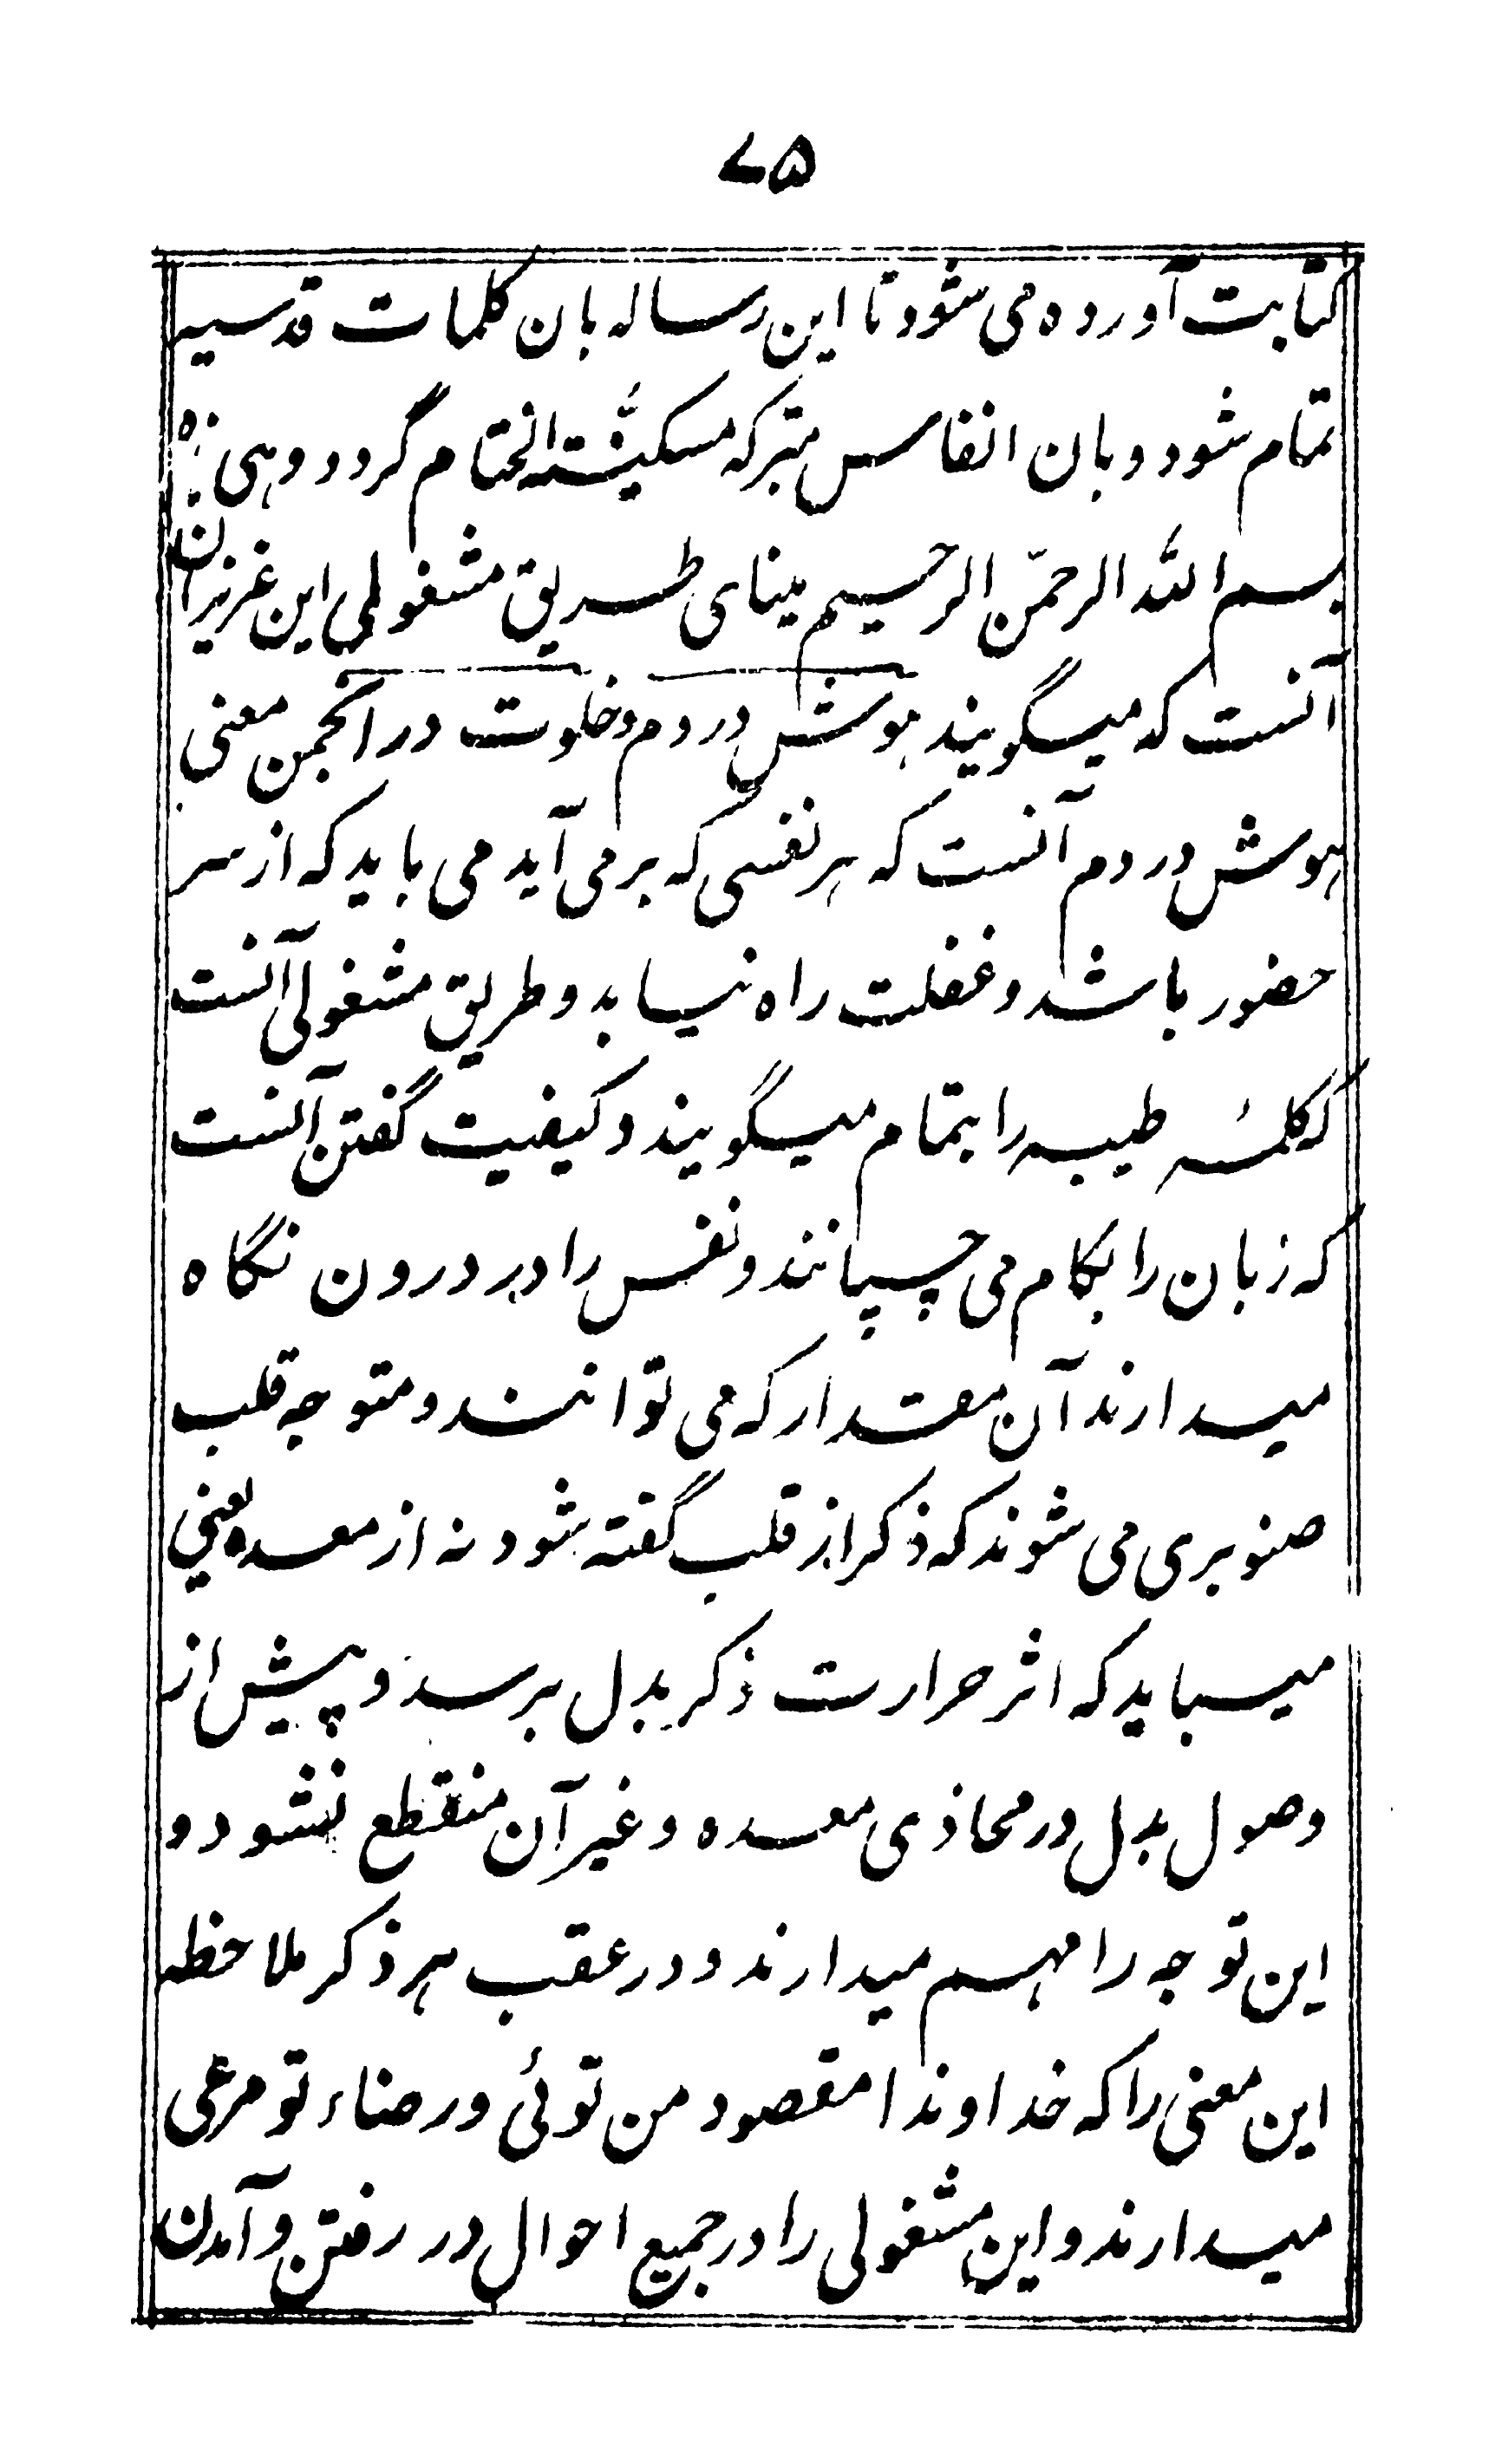 ۷۵
کتابت آورده می شود تا این رساله بان کلمات قدسیه
تمام شود و بان انفاس متبرکه مسکیّة الختام گردد وهی هذه
بسم الله الرحمّن الرحیم بینای طریق مشغولی این عزیزان
آنست که میگویند هوش در دم و خلوت در انجمن معنی
هوش در دم آنست که هر نفسی که بر می آید می باید که از سر
حضور باشد و غفلت راه نیابد و طریق مشغولی آنست
که کلمهٔ طیبه را بتمام میگویند و کیفیت گفتن آنست
که زبان را بکام می چسپانند و نفس را در درون نگاه
میدارند آن مقدار که می توانند و متوجه قلب
صنوبری می شوند که ذکر از قلب گفته شود نه از معده یعنی
میباید که اثر حرارت ذکر بدل برسد و پیش از
وصول بدل در محاذی معده و غیر آن منقطع نشود و
این توجه را مهم میدارند و در عقب هر ذکر ملاحظه
این معنی را که خداوندا مقصود من توئی و رضاء تو مرعی
میدارند و این مشغولی را در جمیع احوال در رفتن و آمدن